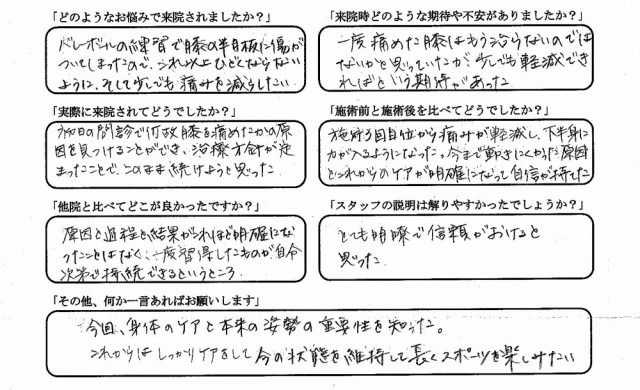 「どのようなお悩みで来院されましたか？」
バレーボールの練習で膝の半月板に傷が
ついてしまったので、これ以上ひどくならない
ように、そして少しでも痛みを減らしたい
「来院時どのような期待や不安がありましたか？」
一度痛めた膝はもう治らないのでは
ないかと思っていたが少しでも軽減でき
ればという期待があった
「実際に来院されてどうでしたか？」
初日の問診で何故膝を痛めたかの原
因を見つけることができ、治療方針が定
まったことで、このまま続けようと思った
「施術前と施術後を比べてどうでしたか？」
施術3回目位から痛みが軽減し、下半身に
力が入るようになった。今まで動きにくかった原因
とこれからのケアが明確になって自信が持てた
「他院と比べてどこが良かったですか？」
原因と過程と結果がこれほど明確にな
ったことはなく、一度習得したものが自分
次第で持続できるというところ
「スタッフの説明は解りやすかったでしょうか？」
とても明瞭で信頼がおけると
思った
「その他、何か一言あればお願いします」
今回、身体のケアと本来の姿勢の重要性を知った。
これからはしっかりケアをして今の状態を維持して長くスポーツを楽しみたい